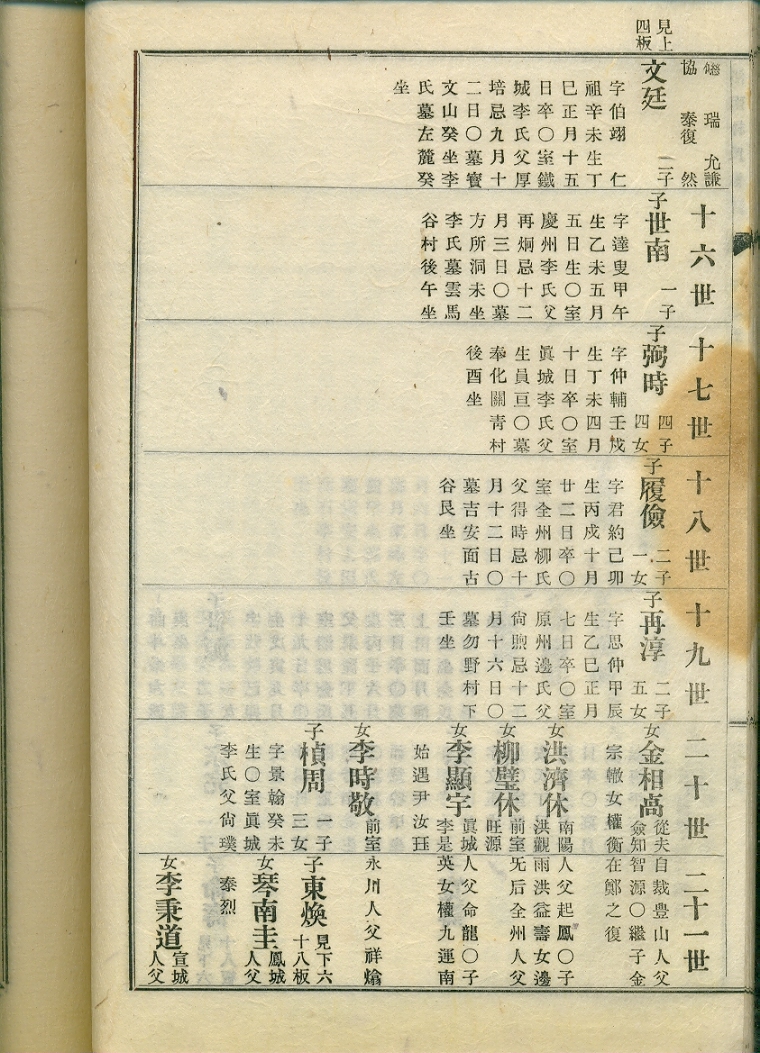 見上
四板
瑞 允謙
協 泰復 然
文廷 二子
字伯翊 仁
祖辛未生丁
巳正月十五
日卒〇室鐵
城李氏父厚
培忌九月十
二日〇墓寶
文山癸坐李
氏墓左麓癸
坐
十六世
子世南 一子
字達叟甲午
生乙未五月
五日生〇室
慶州李氏父
再炯忌十二
月三日〇墓
方所洞未坐
李氏墓雲馬
谷村後午坐
十七世
子弼時 四子
四女
字仲輔壬戌
生丁未四月
十日卒〇室
眞城李氏父
生員亘〇墓
奉化關靑村
後酉坐
十八世
子履儉 二子
一女
字君約己卯
生丙戌十月
廿二日卒〇
室全州柳氏
父得時忌十
月十二日〇
墓吉安面古
谷艮坐
十九世
子再淳 二子
五女
字思仲甲辰
生乙巳正月
七日卒〇室
原州邊氏父
尙煦忌十二
月十六日〇
墓勿野村下
壬坐
二十世
女金相卨 從夫
僉知
宗轍女權衡
女洪濟休 南陽
洪觀
女柳璧休 前室
旺源
女李顯宇 眞城
李是
始遇尹汝珏
女李時敬 前室
子楨周 一子
三女
字景翰癸未
生〇室眞城
李氏父尙璞
二十一世
自裁豊山人父
智源〇繼子金
在鄭之復
人父起鳳〇子
雨洪益壽女邊
旡后全州人父
人父命龍〇子
英女權九運南
永川人父祥爚
子東煥 見下六
十八板
女琴南圭 鳳城
人父
泰烈
女李秉道 宣城
人父